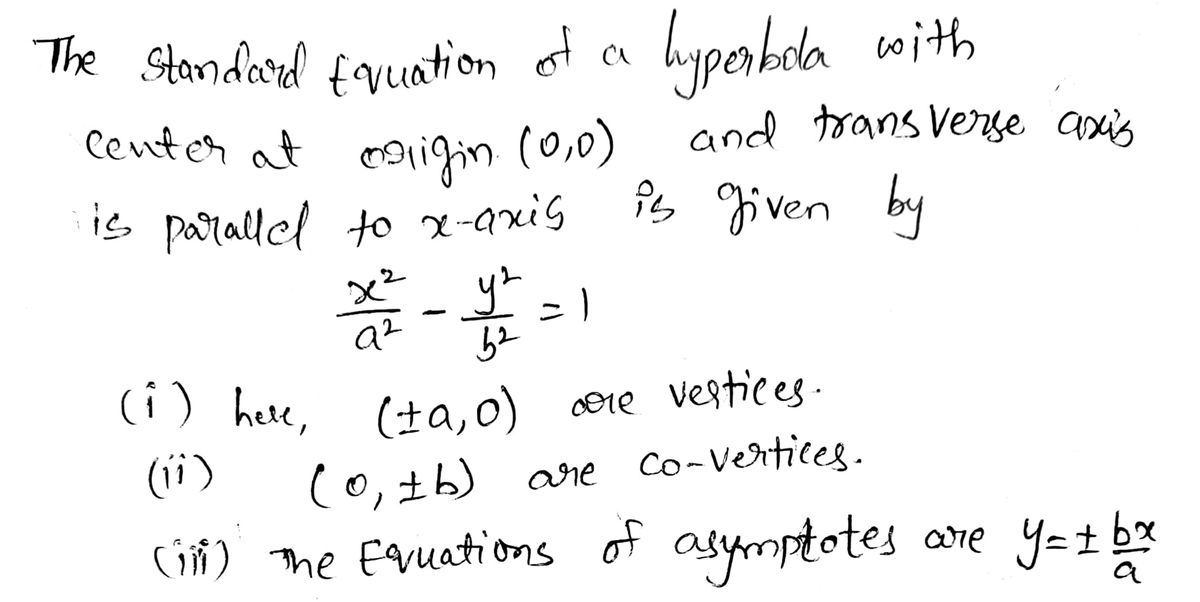 The Standard Equation of a hyperbola with
center at origin (0,0) and transverse axis
is parallel to x-axis is given by
x²/a² - y²/b² = 1
(i) here, (±a,0) are vertices.
(ii) (0,±b) are co-vertices.
(iii) The Equations of asymptotes are y=± bx/a